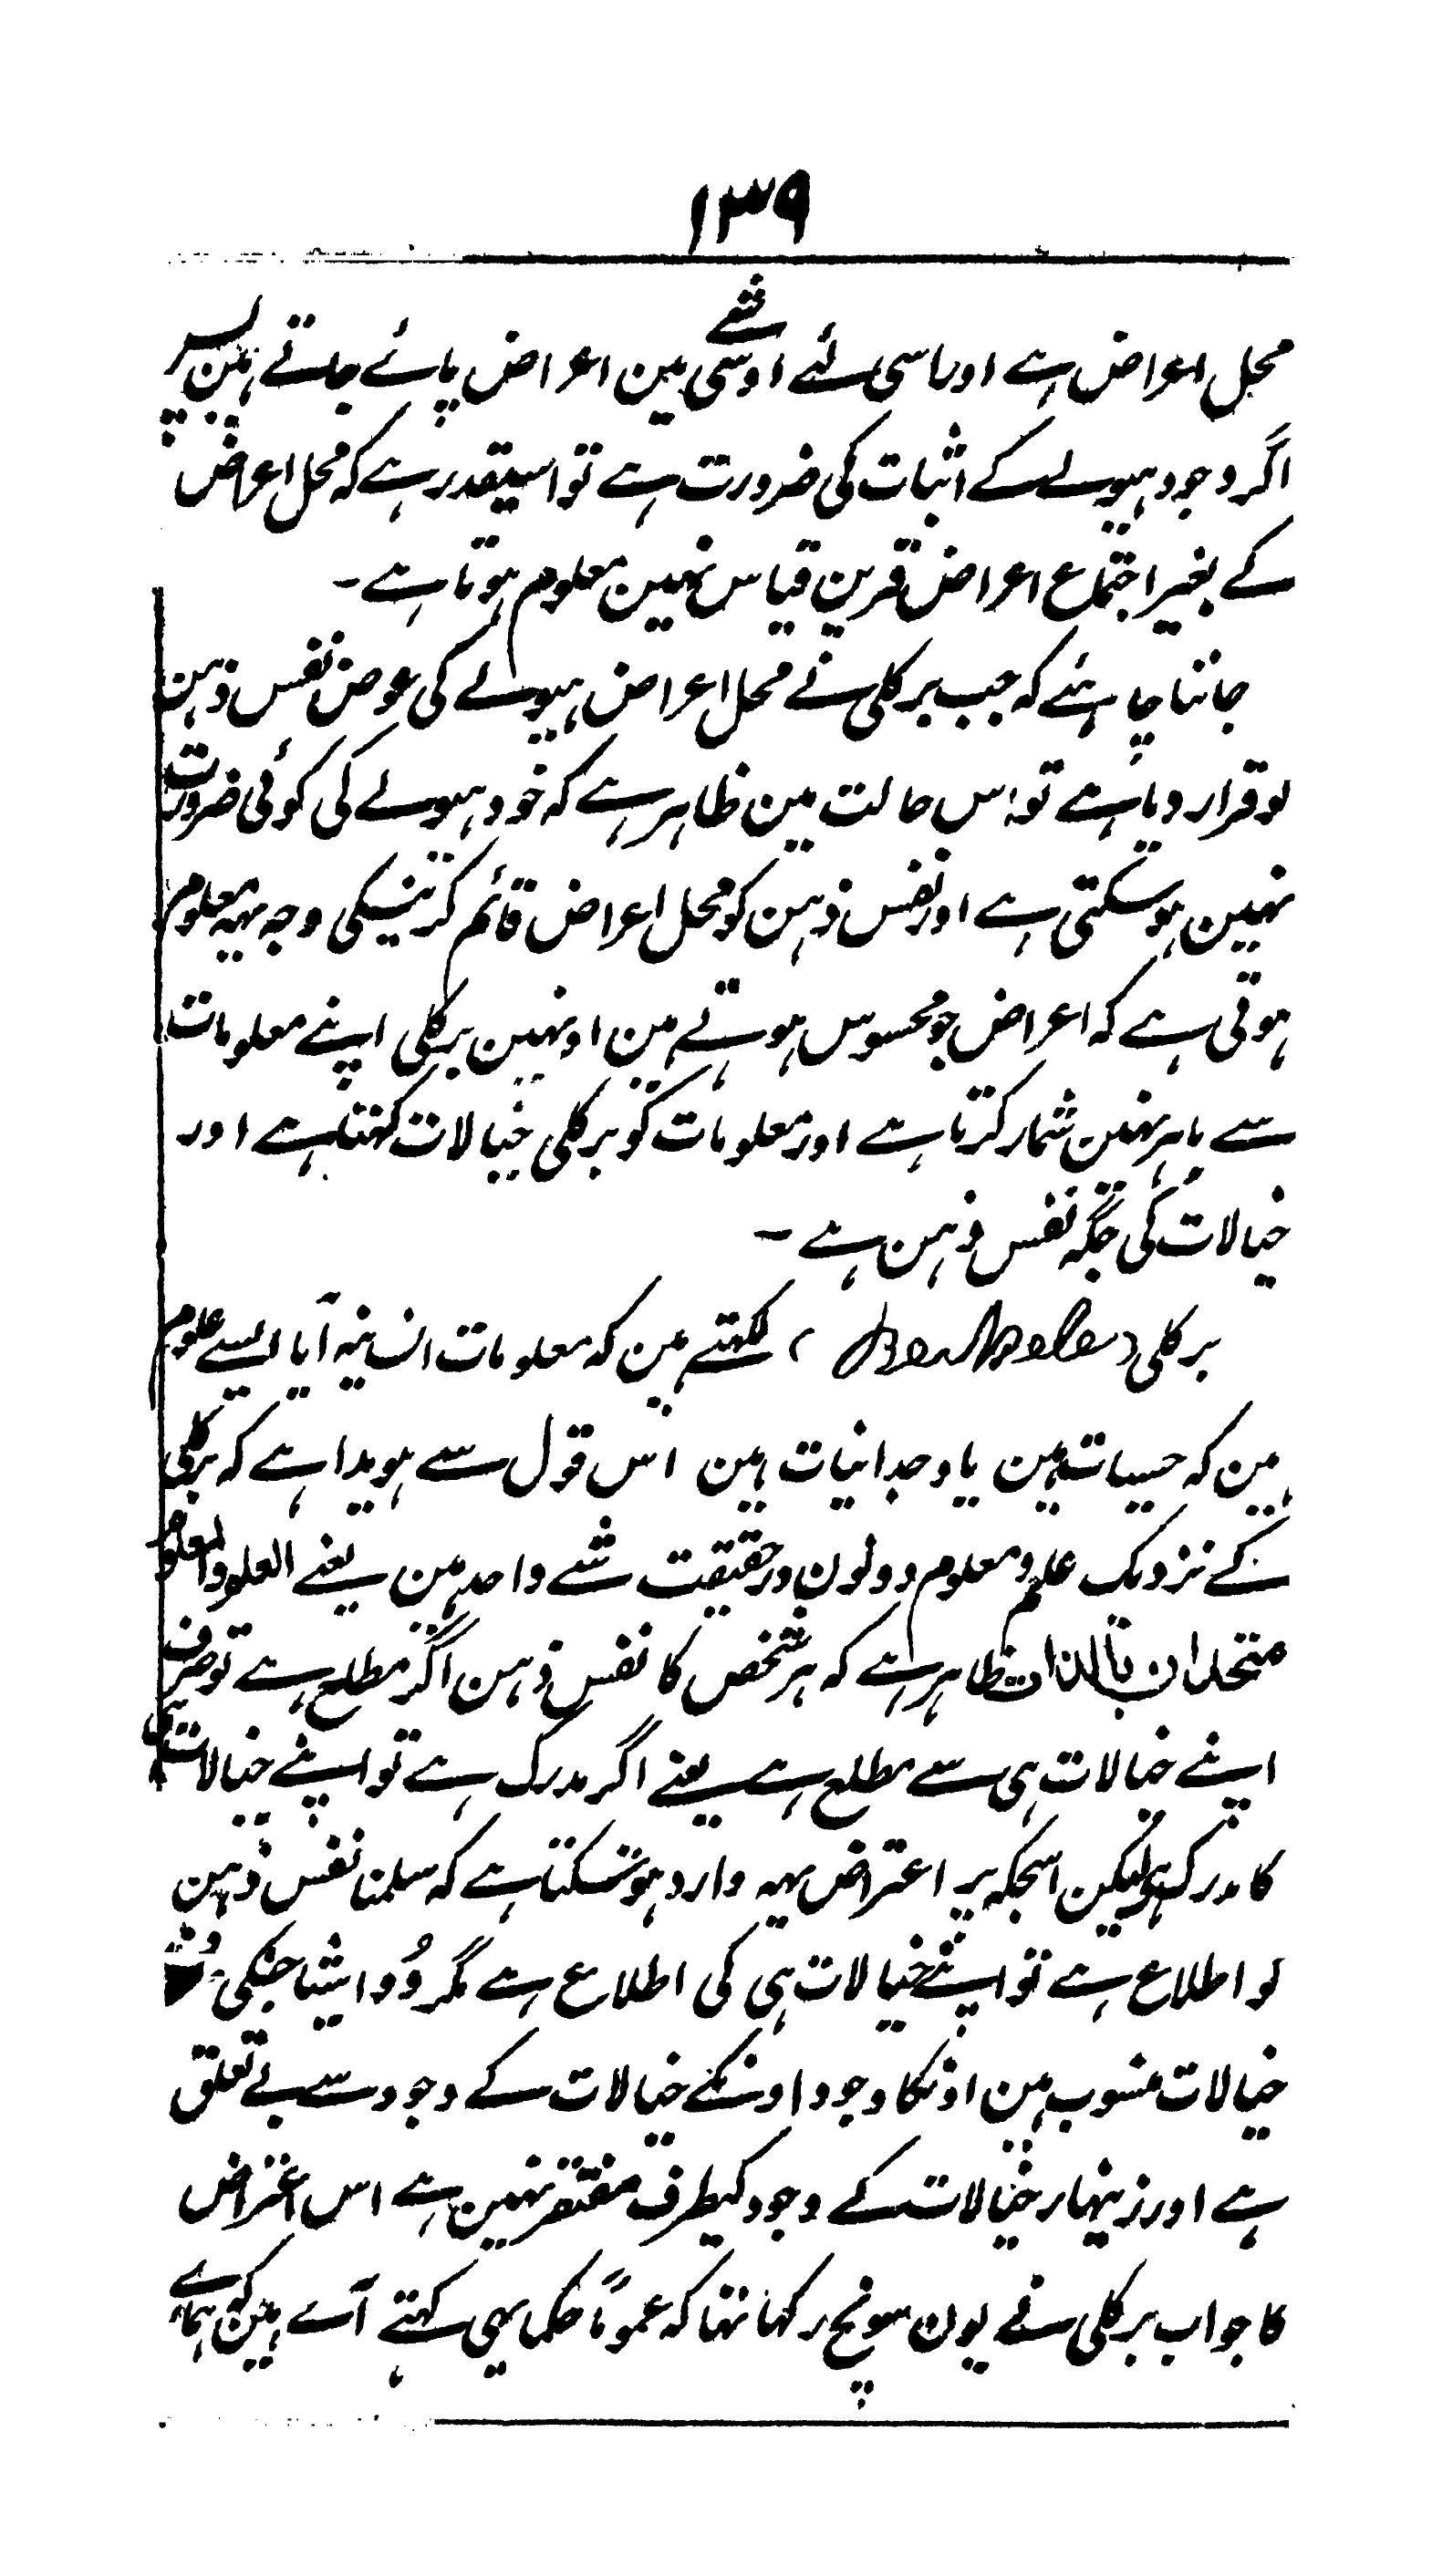 ۱۳۹
محل اعراض ہے اور اسی لئے اوسی شے مین اعراض پائے جاتے ہین پس
اگر وجود ہیولے کے اثبات کی ضرورت ہے تو اسیقدر ہے کہ محل اعراض
کے بغیر اجتماع اعراض قرین قیاس نہین معلوم ہوتا ہے ۔
جاننا چاہئے کہ جب برکلی نے محل اعراض ہیولے کی عوض نفس ذہن
کو قرار دیا ہے تو اس حالت مین ظاہر ہے کہ خود ہیولے کی کوئی ضرورت
نہین ہو سکتی ہے اور نفس ذہن کو محل اعراض قائم کرنیکی وجہ یہہ معلوم
ہوتی ہے کہ اعراض جو محسوس ہوتے ہین اونہین برکلی اپنے معلومات
سے باہر نہین شمار کرتا ہے اور معلومات کو برکلی خیالات کہتا ہے اور
خیالات کی جگہ نفس ذہن ہے ۔
برکلی ( ) لکھتے ہین کہ معلومات انسانیہ آیا ایسے علوم
ہین کہ حسیات ہین یا وجدانیات ہین اس قول سے ہویدا ہے کہ برکلی
کے نزدیک علم و معلوم دونون درحقیقت شے واحد ہین یعنے العلم والمعلوم
متحدان بالذات ظاہر ہے کہ ہر شخص کا نفس ذہن اگر مطلع ہے تو صرف
اپنے خیالات ہی سے مطلع ہے یعنے اگر مدرک ہے تو اپنے خیالات ہی
کا مدرک ہے لیکن اسجگہ پر اعتراض یہہ وارد ہو سکتا ہے کہ سلمنا نفس ذہن
کو اطلاع ہے تو اپنے خیالات ہی کی اطلاع ہے مگر وُہ اشیا جنکی
خیالات منسوب ہین اونکا وجود اونکے خیالات کے وجود سے بے تعلق
ہے اور زینہار خیالات کے وجود کیطرف مفتقر نہین ہے اس اعتراض
کا جواب برکلی نے یون سونچ رکھا تھا کہ عموماً حکما یہی کہتے آئے ہین کہ ہمارے